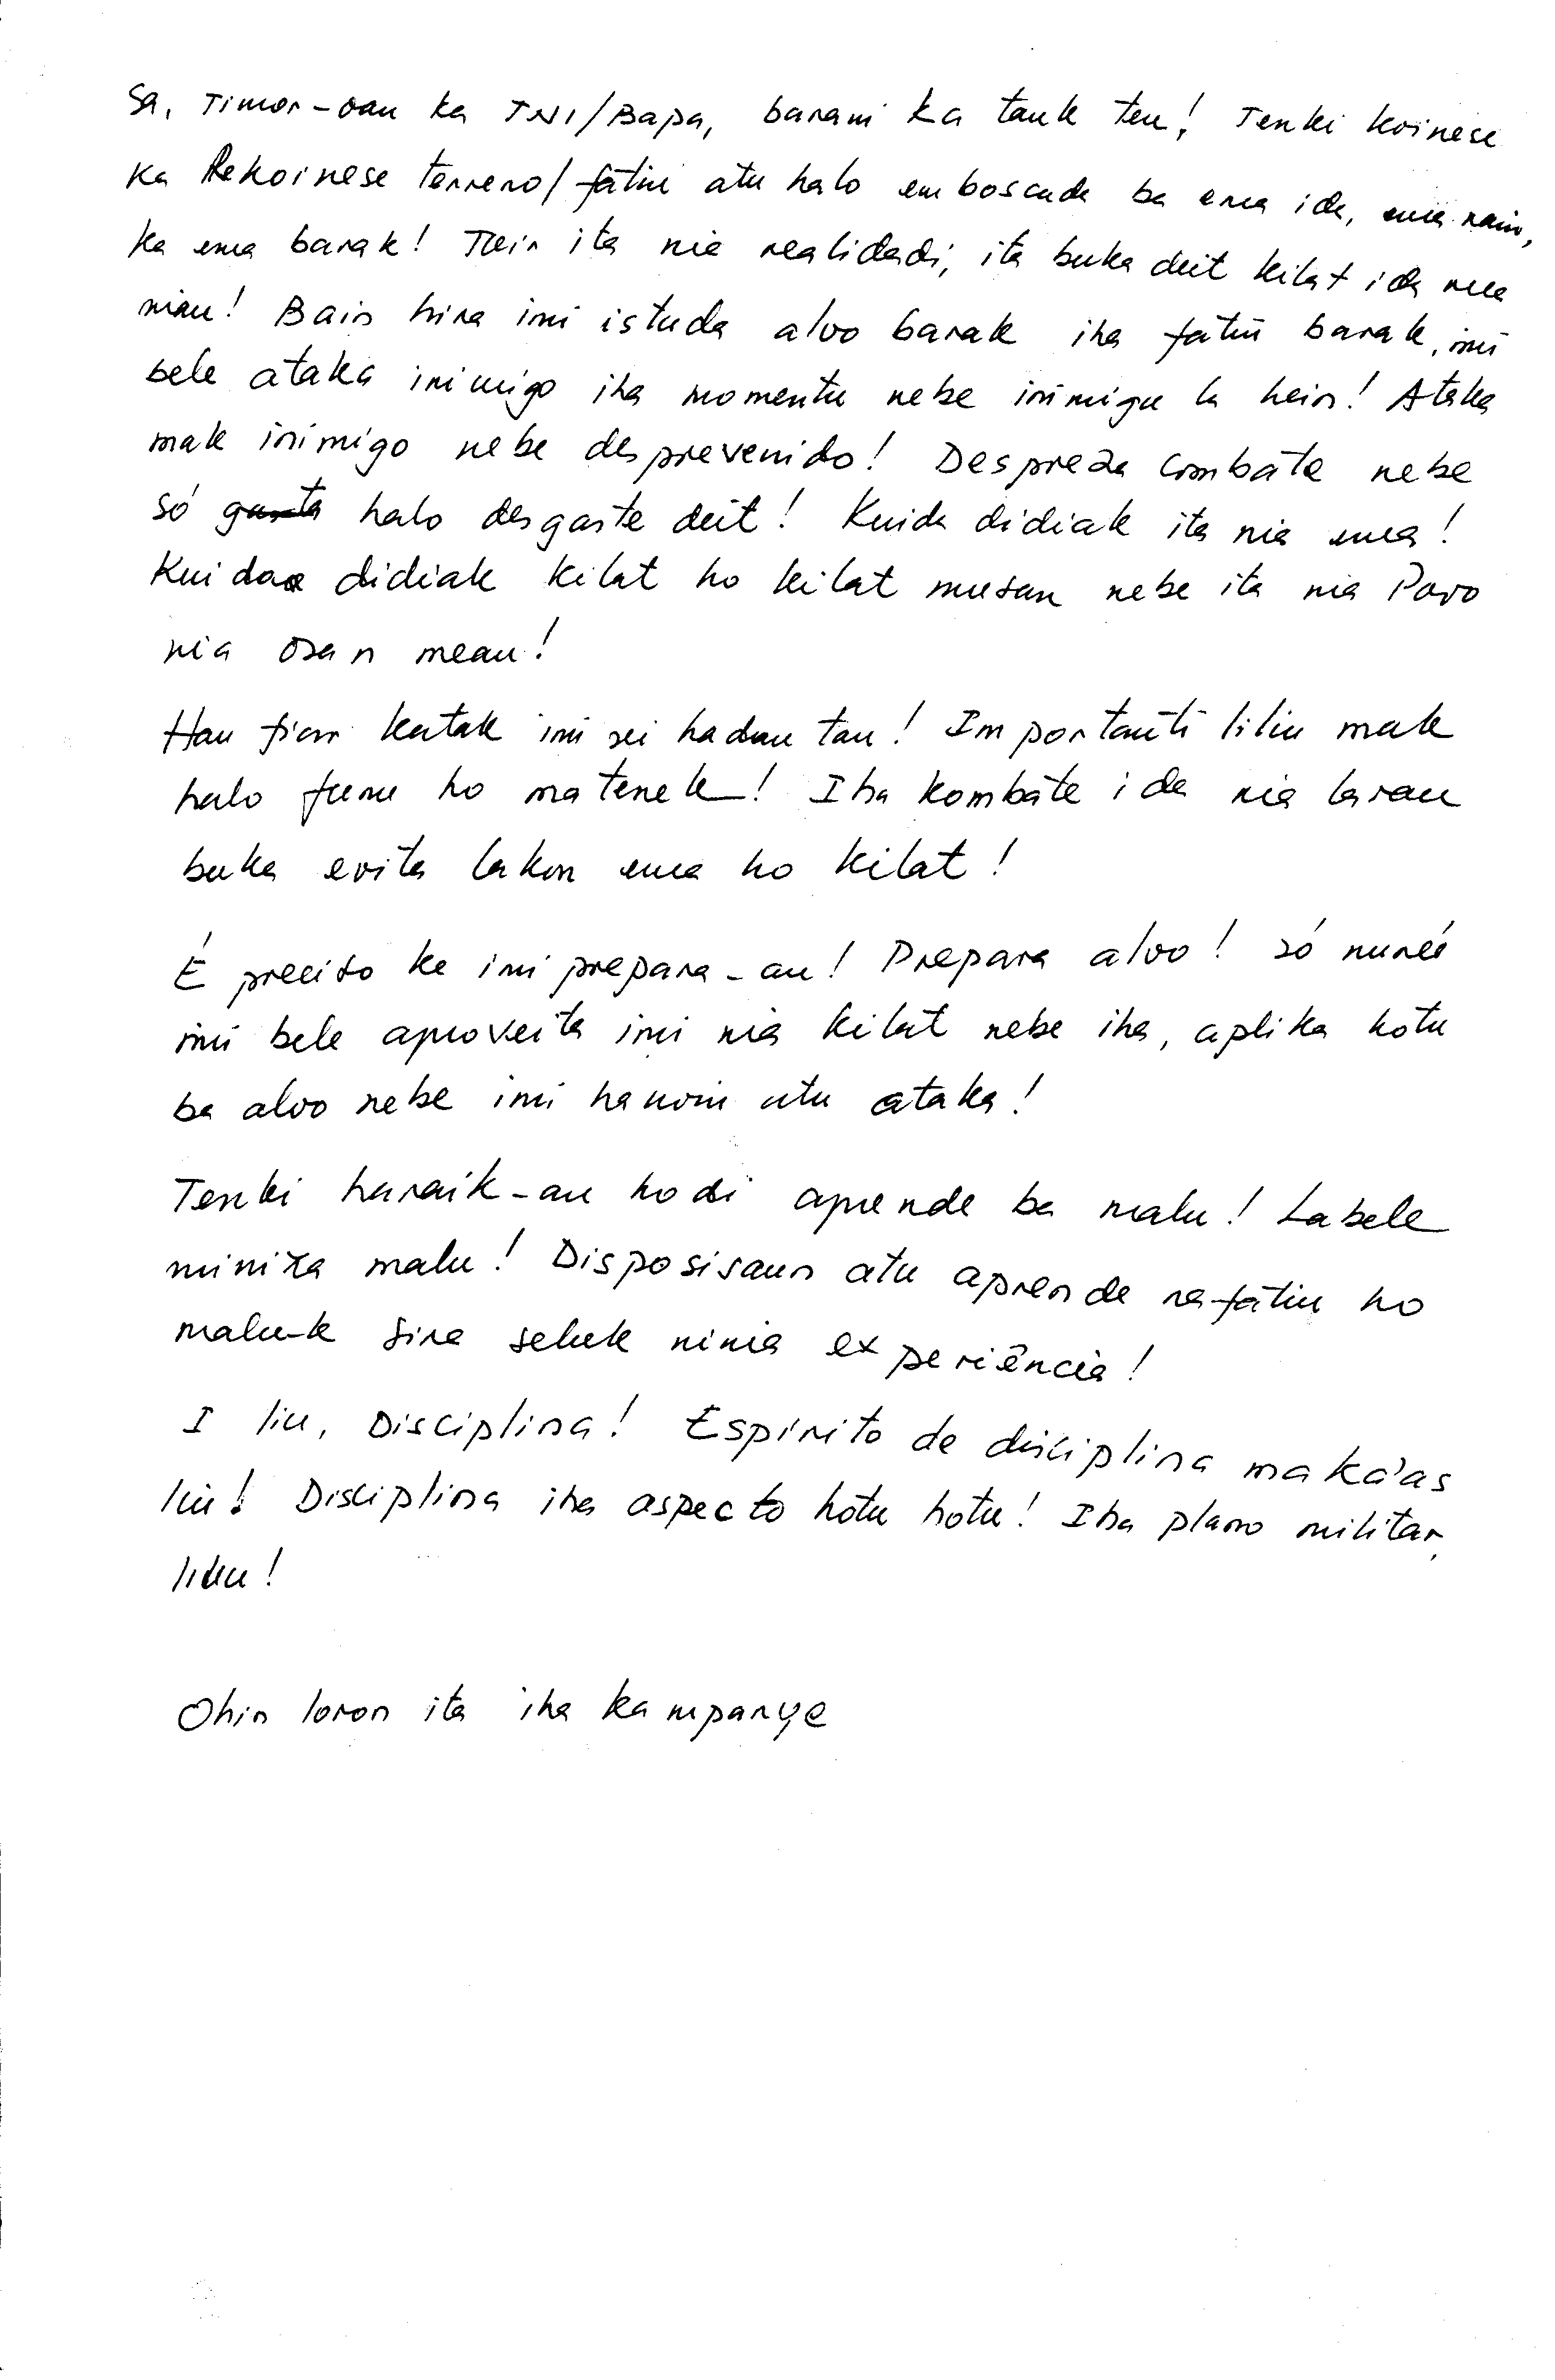 Sa, Timor-oan ka TNI/Bapa, barani ka tauk teu! Tenki koinese
ka Rekoinese terreno/fatin atu halo emboscada ba ema ida, ema nain,
ka ema barak! Tuir ita nia realidadi, ita buka deit kilat ida rua
nian! Bain hira imi istuda alvo barak iha fatin barak, imi
bele ataka inimigo iha momentu nebe inimigu la hein! Ataka
mak inimigo nebe desprevenido! Despreza combate nebe
só halo desgaste deit! Kuida didiak ita nia ema!
Kuida didiak kilat ho kilat musan nebe ita nia Povo
nia osan mean!
Hau fiar katak imi sei hadau tan! Importanti liliu mak
halo funu ho matenek! Iha kombate ida nia laran
buka evita lakon ema ho kilat!
É preciso ke imi prepara-an! Prepara alvo! Só nuneé
imi bele aproveita imi nia kilat nebe iha, aplika hotu
ba alvo nebe imi hanoin atu ataka!
Tenki haraik-an hodi aprende ba malu! Labele
minixa malu! Disposisaun atu aprende nafatin ho
maluk sira seluk ninia experiência!
I liu, Disciplina! Espírito de disciplina maka'as
liu! Disciplina iha aspecto hotu hotu! Iha plano militar,
liliu!
Ohin loron ita iha kampanye